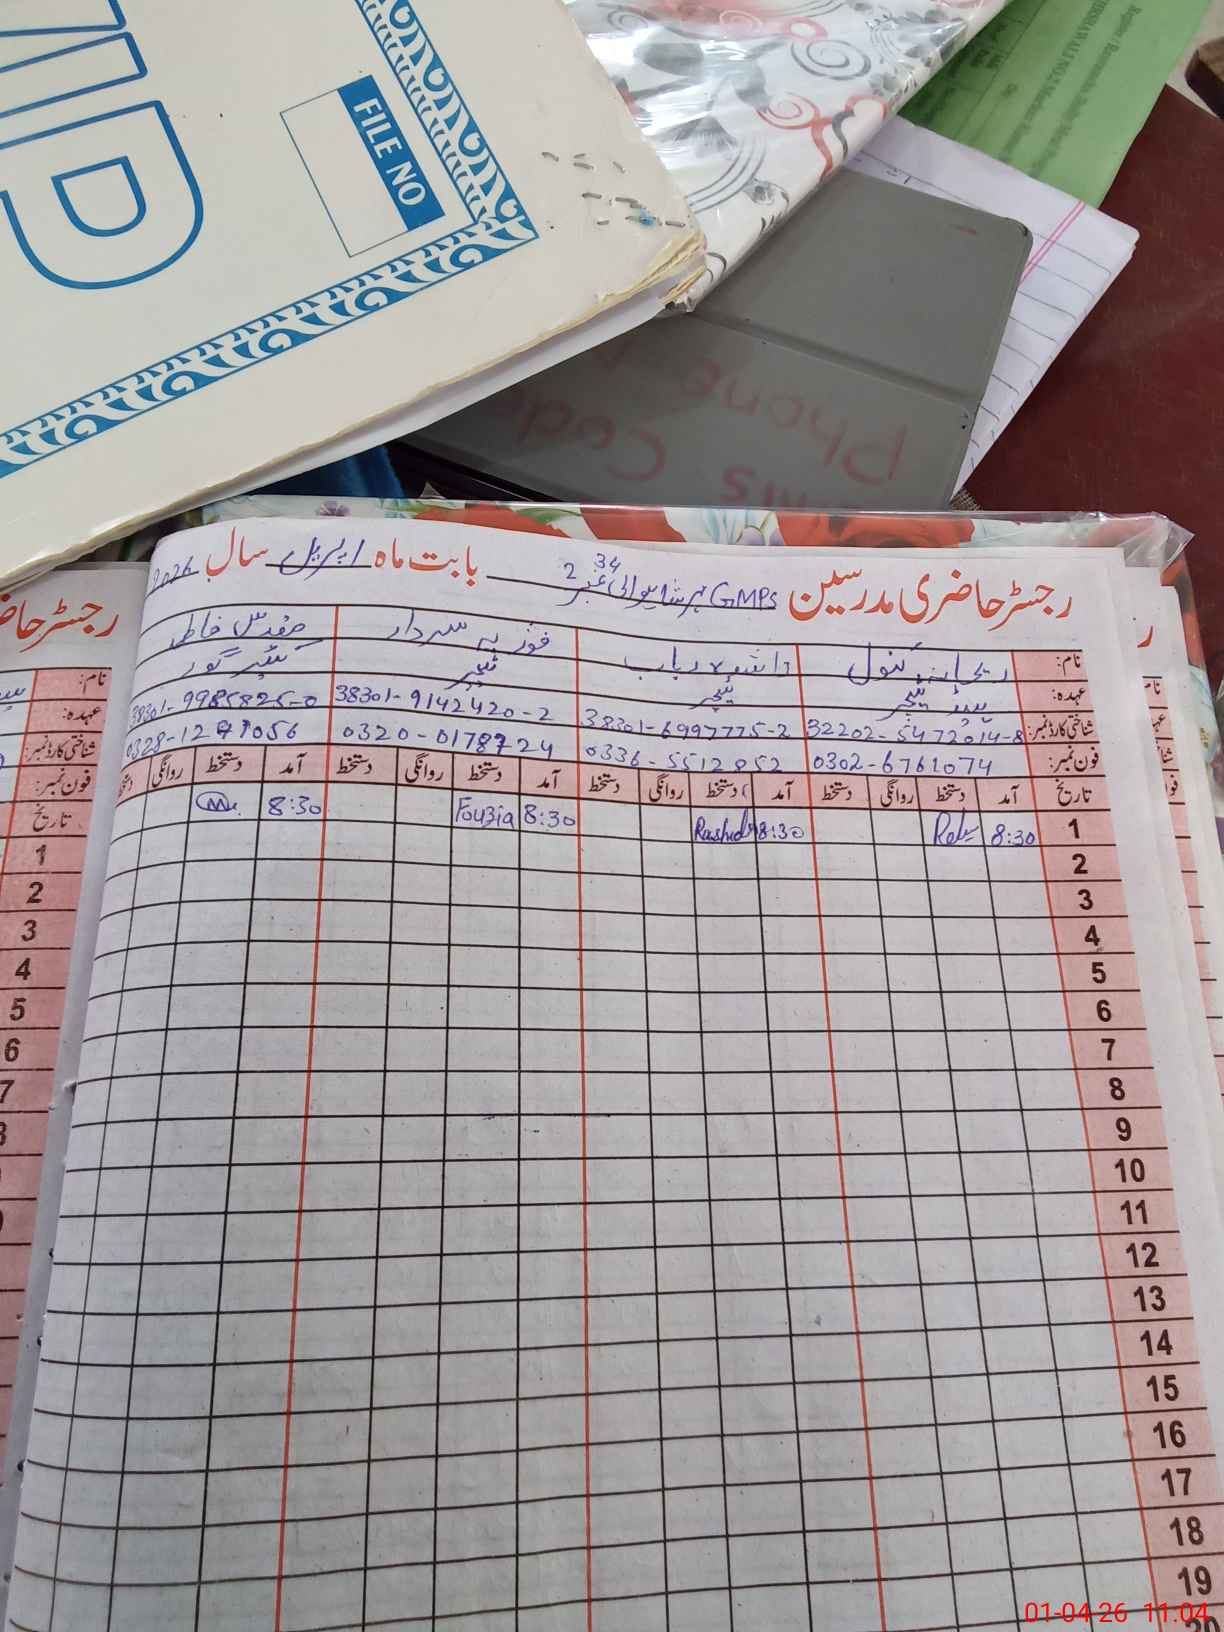 FILE NO
MP
Phone
Code
رجسٹر حاضری مدرسین GMPS ہرشاہیوالی نمبر 2 34 بابت ماہ اپریل سال 2026
نام: ریحانہ کنول راشدہ رباب فوزیہ سردار مقدس فاطمہ
عہدہ: ہیڈ ٹیچر ٹیچر ٹیچر کیئر گور
شناختی کارڈ نمبر: 32202-5472014-8 38301-6997775-2 38301-9142420-2 38301-9985825-0
فون نمبر: 0302-6761074 0336-5512852 0320-0178724
تاریخ آمد دستخط روانگی دستخط آمد دستخط روانگی دستخط آمد دستخط روانگی دستخط آمد دستخط روانگی دستخط
1 8:30 8:30 Rashida 8:30 Fouzia 8:30
2
3
4
5
6
7
8
9
10
11
12
13
14
15
16
17
18
19
20
نام:
عہدہ:
شناختی کارڈ نمبر:
فون نمبر:
تاریخ
1
2
3
4
5
6
7
8
01-04 26 11.04